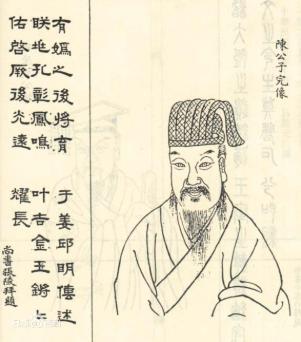 陳公子完像
有媯之後將育于姜邱明傳述
眹兆孔彰鳳鳴叶吉金玉鏘々
佑啓厥後光遠耀長
尚書張拜題